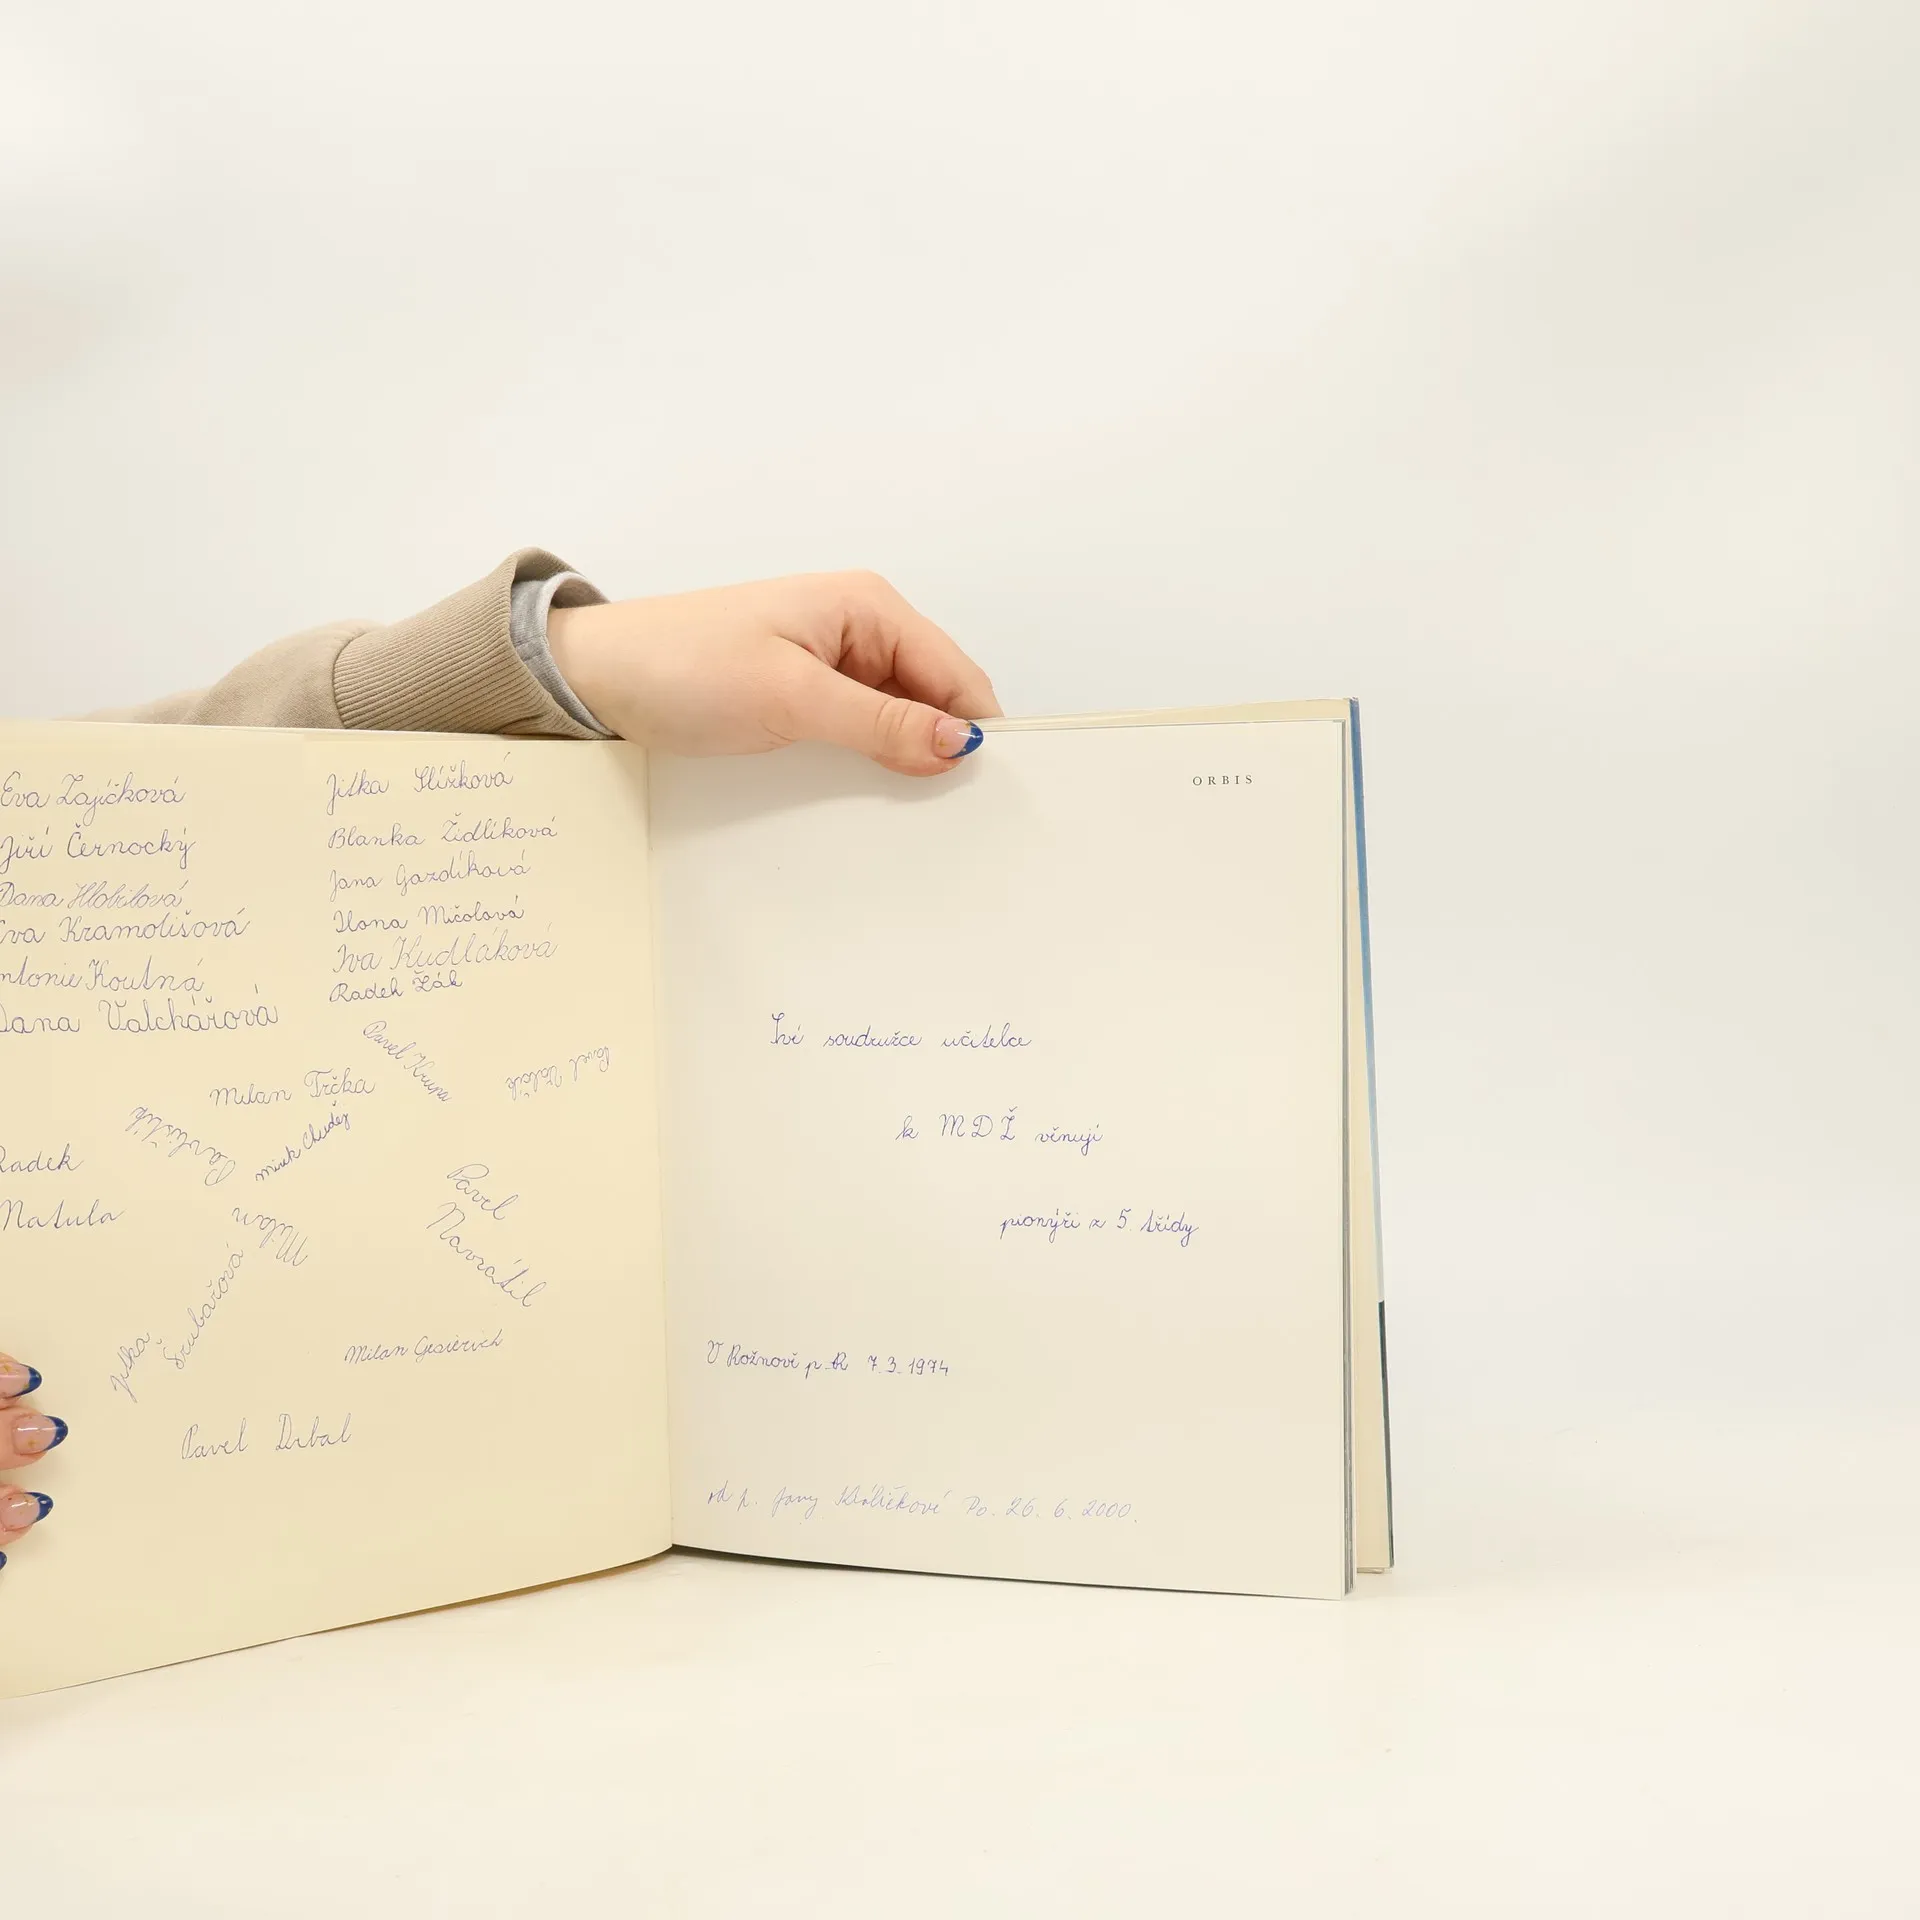 Eva Zajíčková
Jiří Černocký
Dana Hlobilová
Eva Kramolišová
ntonie Koutná
Dana Valchářová
Jitka Slížková
Blanka Židlíková
Jana Gazdíková
Ilona Mičolová
Iva Kudláková
Radek Žák
Pavel Krupa
Pavel Valčík
Milan Trčka
Mirek Chuděj
Pavlištík
Milan
Radek
Matula
Pavel
Navrátil
Jitka
Šrubařová
Milan
Pavel Drbal
ORBIS
Své soudružce učitelce
k MDŽ věnují
pionýři z 5. třídy
V Rožnově p. R 7.3.1974
od p. Jany Králíčkové Po. 26. 6. 2000.